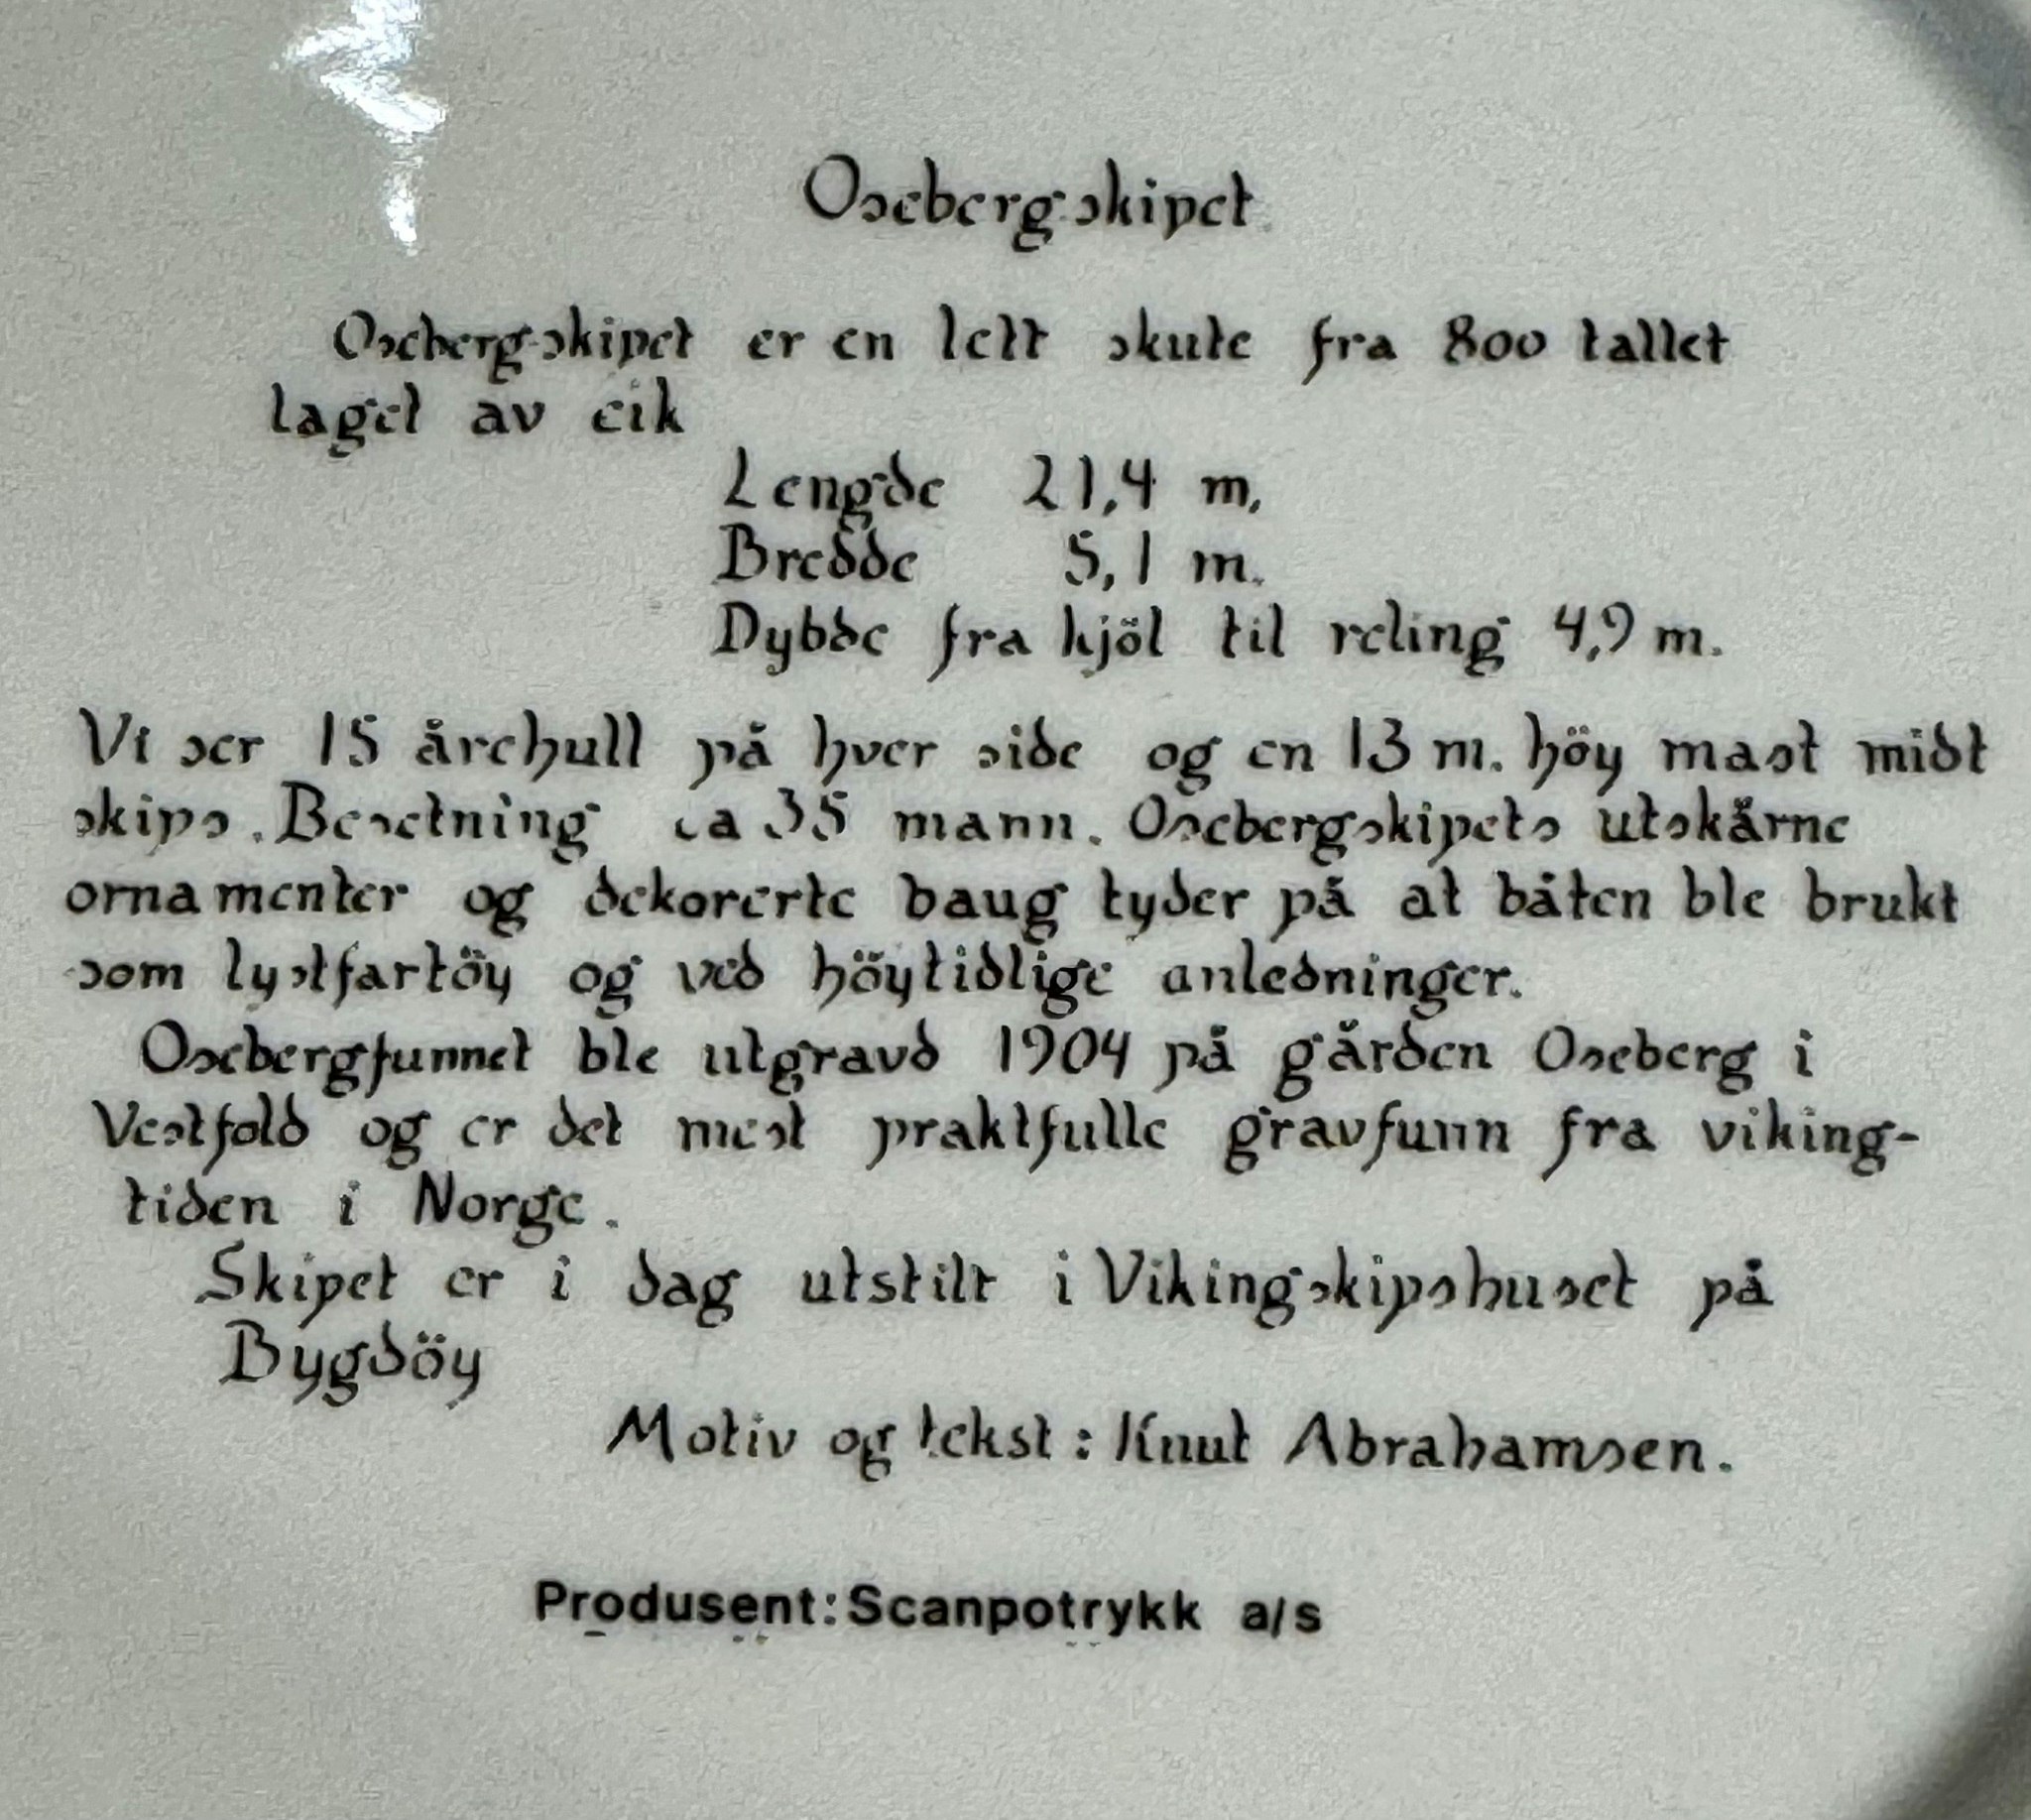 Osebergskipet
Osebergskipet er en lett skute fra 800 tallet
laget av eik
Lengde 21,4 m,
Bredde 5,1 m.
Dybde fra kjöl til reling 4,9 m.
Vi ser 15 årehull på hver side og en 13 m. höy mast midt
skips. Besetning ca 35 mann. Osebergskipets utskårne
ornamenter og dekorerte baug tyder på at båten ble brukt
som lystfartöy og ved höytidlige anledninger.
Osebergfunnet ble utgravd 1904 på gården Oseberg i
Vestfold og er det mest praktfulle gravfunn fra viking-
tiden i Norge.
Skipet er i dag utstilt i Vikingskipshuset på
Bygdöy
Motiv og tekst: Knut Abrahamsen.
Produsent: Scanpotrykk a/s